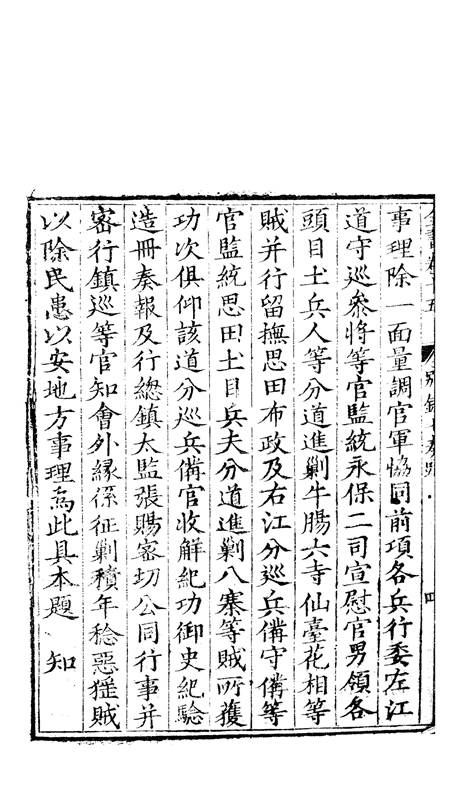 全書卷十五　別錄七奏疏　四
事理除一面量調官軍恊同前項各兵行委左江
道守巡叅將等官監統永保二司宣慰官男領各
頭目土兵人等分道進剿牛腸六寺仙臺花相等
賊并行留撫思田布政及右江分巡兵備守備等
官監統思田土目兵夫分道進剿八寨等賊所獲
功次俱仰該道分巡兵備官收解紀功御史紀驗
造冊奏報及行總鎮太監張賜密切公同行事并
密行鎮巡等官知會外緣係征剿積年稔惡猺賊
以除民患以安地方事理爲此具本題　知